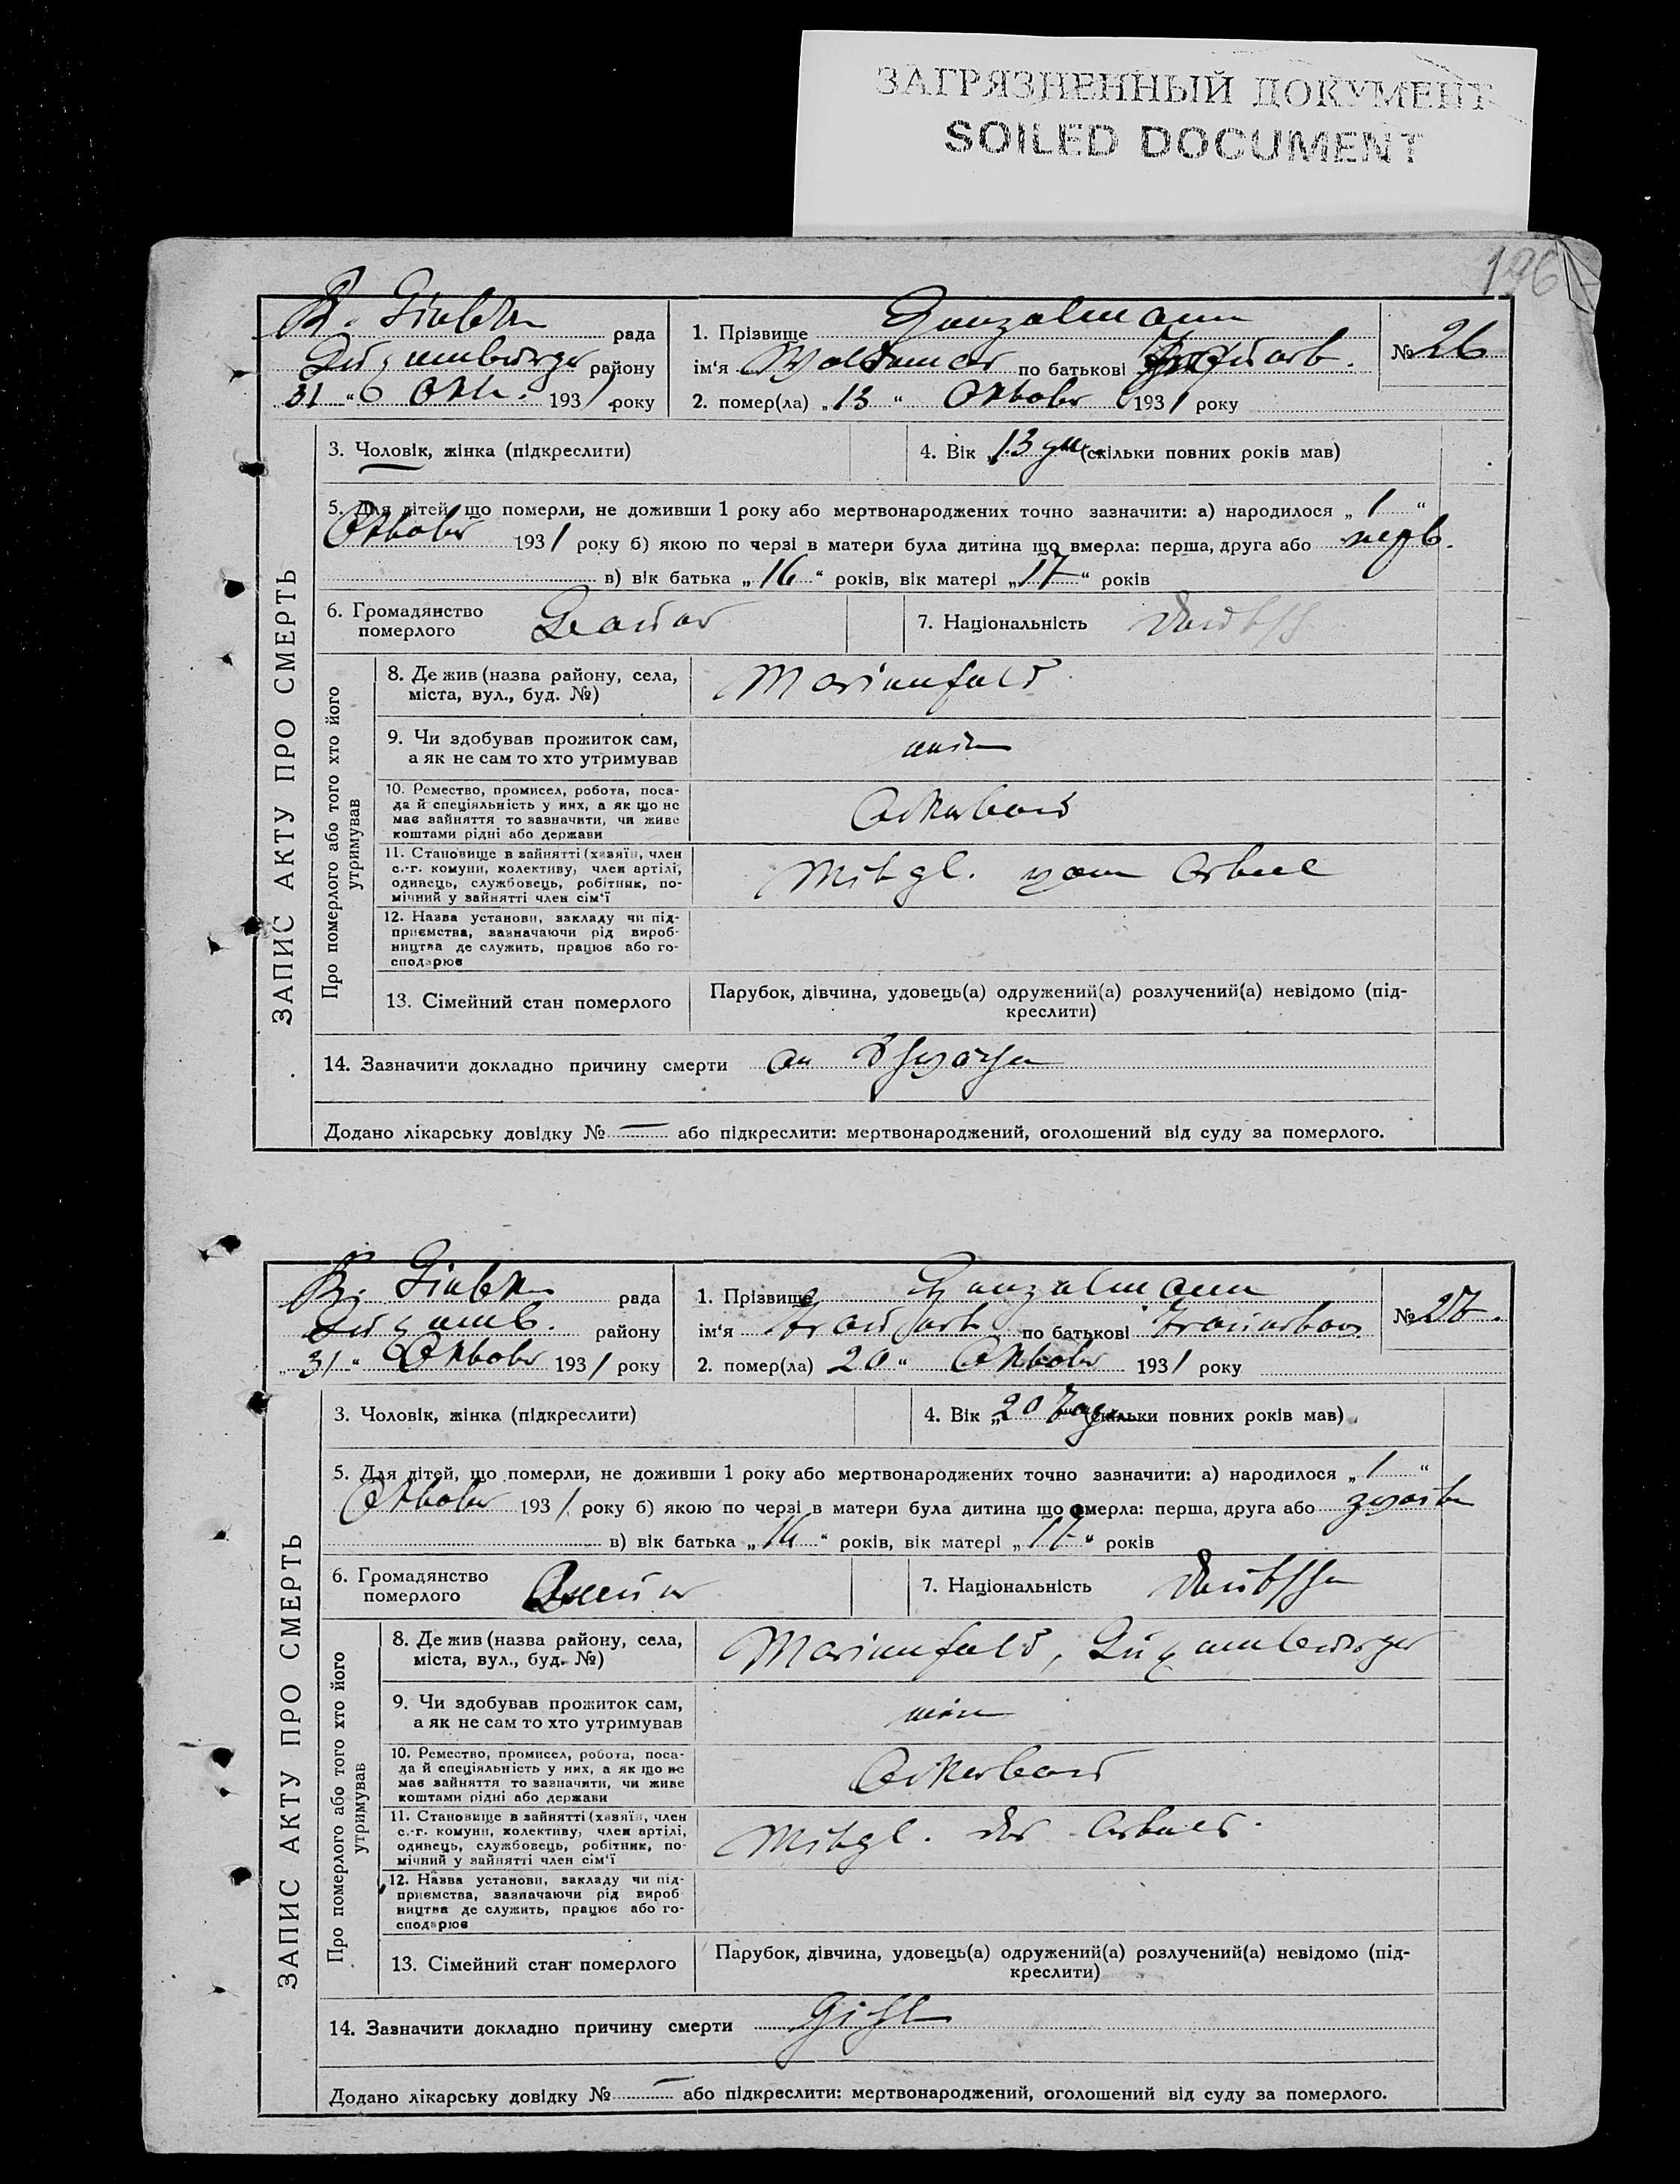 ЗАГРЯЗНЕННЫЙ ДОКУМЕНТ
SOILED DOCUMENT
196
рада
району
31 " Okt. 1931 року
1. Прізвище
ім'я Woldemar по батькові
2. помер(ла) „13" Oktober 1931 року
№ 26
ЗАПИС АКТУ ПРО СМЕРТЬ
3. Чоловік, жінка (підкреслити)
4. Вік „13 (скільки повних років мав)
5. Для дітей, що померли, не доживши 1 року або мертвонароджених точно зазначити: а) народилося „1"
Oktober 1931 року б) якою по черзі в матери була дитина що вмерла: перша, друга або
в) вік батька „16" років, вік матері „17" років
6. Громадянство
померлого
7. Національність Deutsch
Про померлого або того хто його
утримував
8. Де жив (назва району, села,
міста, вул., буд. №)
Marienfeld
9. Чи здобував прожиток сам,
а як не сам то хто утримував
10. Ремество, промисел, робота, поса-
да й спеціяльність у них, а як що не
має зайняття то зазначити, чи живе
коштами рідні або держави
Ackerbau
11. Становище в зайнятті (хазяїн, член
с.-г. комуни, колективу, член артілі,
одинець, службовець, робітник, по-
мічний у зайнятті член сім'ї
Mitgl. vom Artel
12. Назва установи, закладу чи під-
приємства, зазначаючи рід вироб-
ництва де служить, працює або го-
сподарює
13. Сімейний стан померлого
Парубок, дівчина, удовець(а) одружений(а) розлучений(а) невідомо (під-
креслити)
14. Зазначити докладно причину смерти an Schwäche
Додано лікарську довідку № — або підкреслити: мертвонароджений, оголошений від суду за померлого.
рада
Luxemb. району
„31" Oktober 1931 року
1. Прізвище
ім'я по батькові
2. помер(ла) 20" Oktober 1931 року
№ 27.
ЗАПИС АКТУ ПРО СМЕРТЬ
3. Чоловік, жінка (підкреслити)
4. Вік „20 Tage (скільки повних років мав)
5. Для дітей, що померли, не доживши 1 року або мертвонароджених точно зазначити: а) народилося „1"
Oktober 1931 року б) якою по черзі в матери була дитина що вмерла: перша, друга або zweite
в) вік батька „16" років, вік матері „17" років
6. Громадянство
померлого
7. Національність Deutsche
Про померлого або того хто його
утримував
8. Де жив (назва району, села,
міста, вул., буд. №)
Marienfeld, Luxemburger
9. Чи здобував прожиток сам,
а як не сам то хто утримував
10. Ремество, промисел, робота, поса-
да й спеціяльність у них, а як що не
має зайняття то зазначити, чи живе
коштами рідні або держави
Ackerbau
11. Становище в зайнятті (хазяїн, член
с.-г. комуни, колективу, член артілі,
одинець, службовець, робітник, по-
мічний у зайнятті член сім'ї
Mitgl. der Artel.
12. Назва установи, закладу чи під-
приємства, зазначаючи рід вироб-
ництва де служить, працює або го-
сподарює
13. Сімейний стан померлого
Парубок, дівчина, удовець(а) одружений(а) розлучений(а) невідомо (під-
креслити)
14. Зазначити докладно причину смерти
Додано лікарську довідку № — або підкреслити: мертвонароджений, оголошений від суду за померлого.